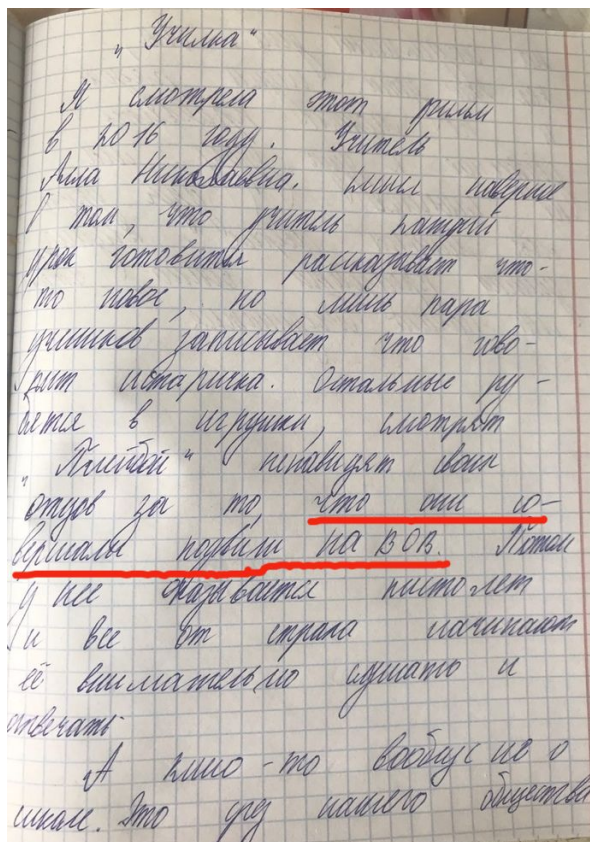 „Училка“
Я смотрела этот фильм
в 2016 году. Учитель
Алла Николаевна. Смысл наверное
в том, что учитель каждый
урок готовится рассказывает что-
то новое, но лишь пара
учеников записывает что гово-
рит историчка. Остальные ру-
бятся в игрушки, смотрят
„Плейбой“ ненавидят своих
отцов за то что они со-
вершали подвиги на ВОВ. Потом
у нее оказывается пистолет
и все от страха начинают
её внимательно слушать и
отвечать.
А кино-то вообще не о
школе. Это срез нашего общества